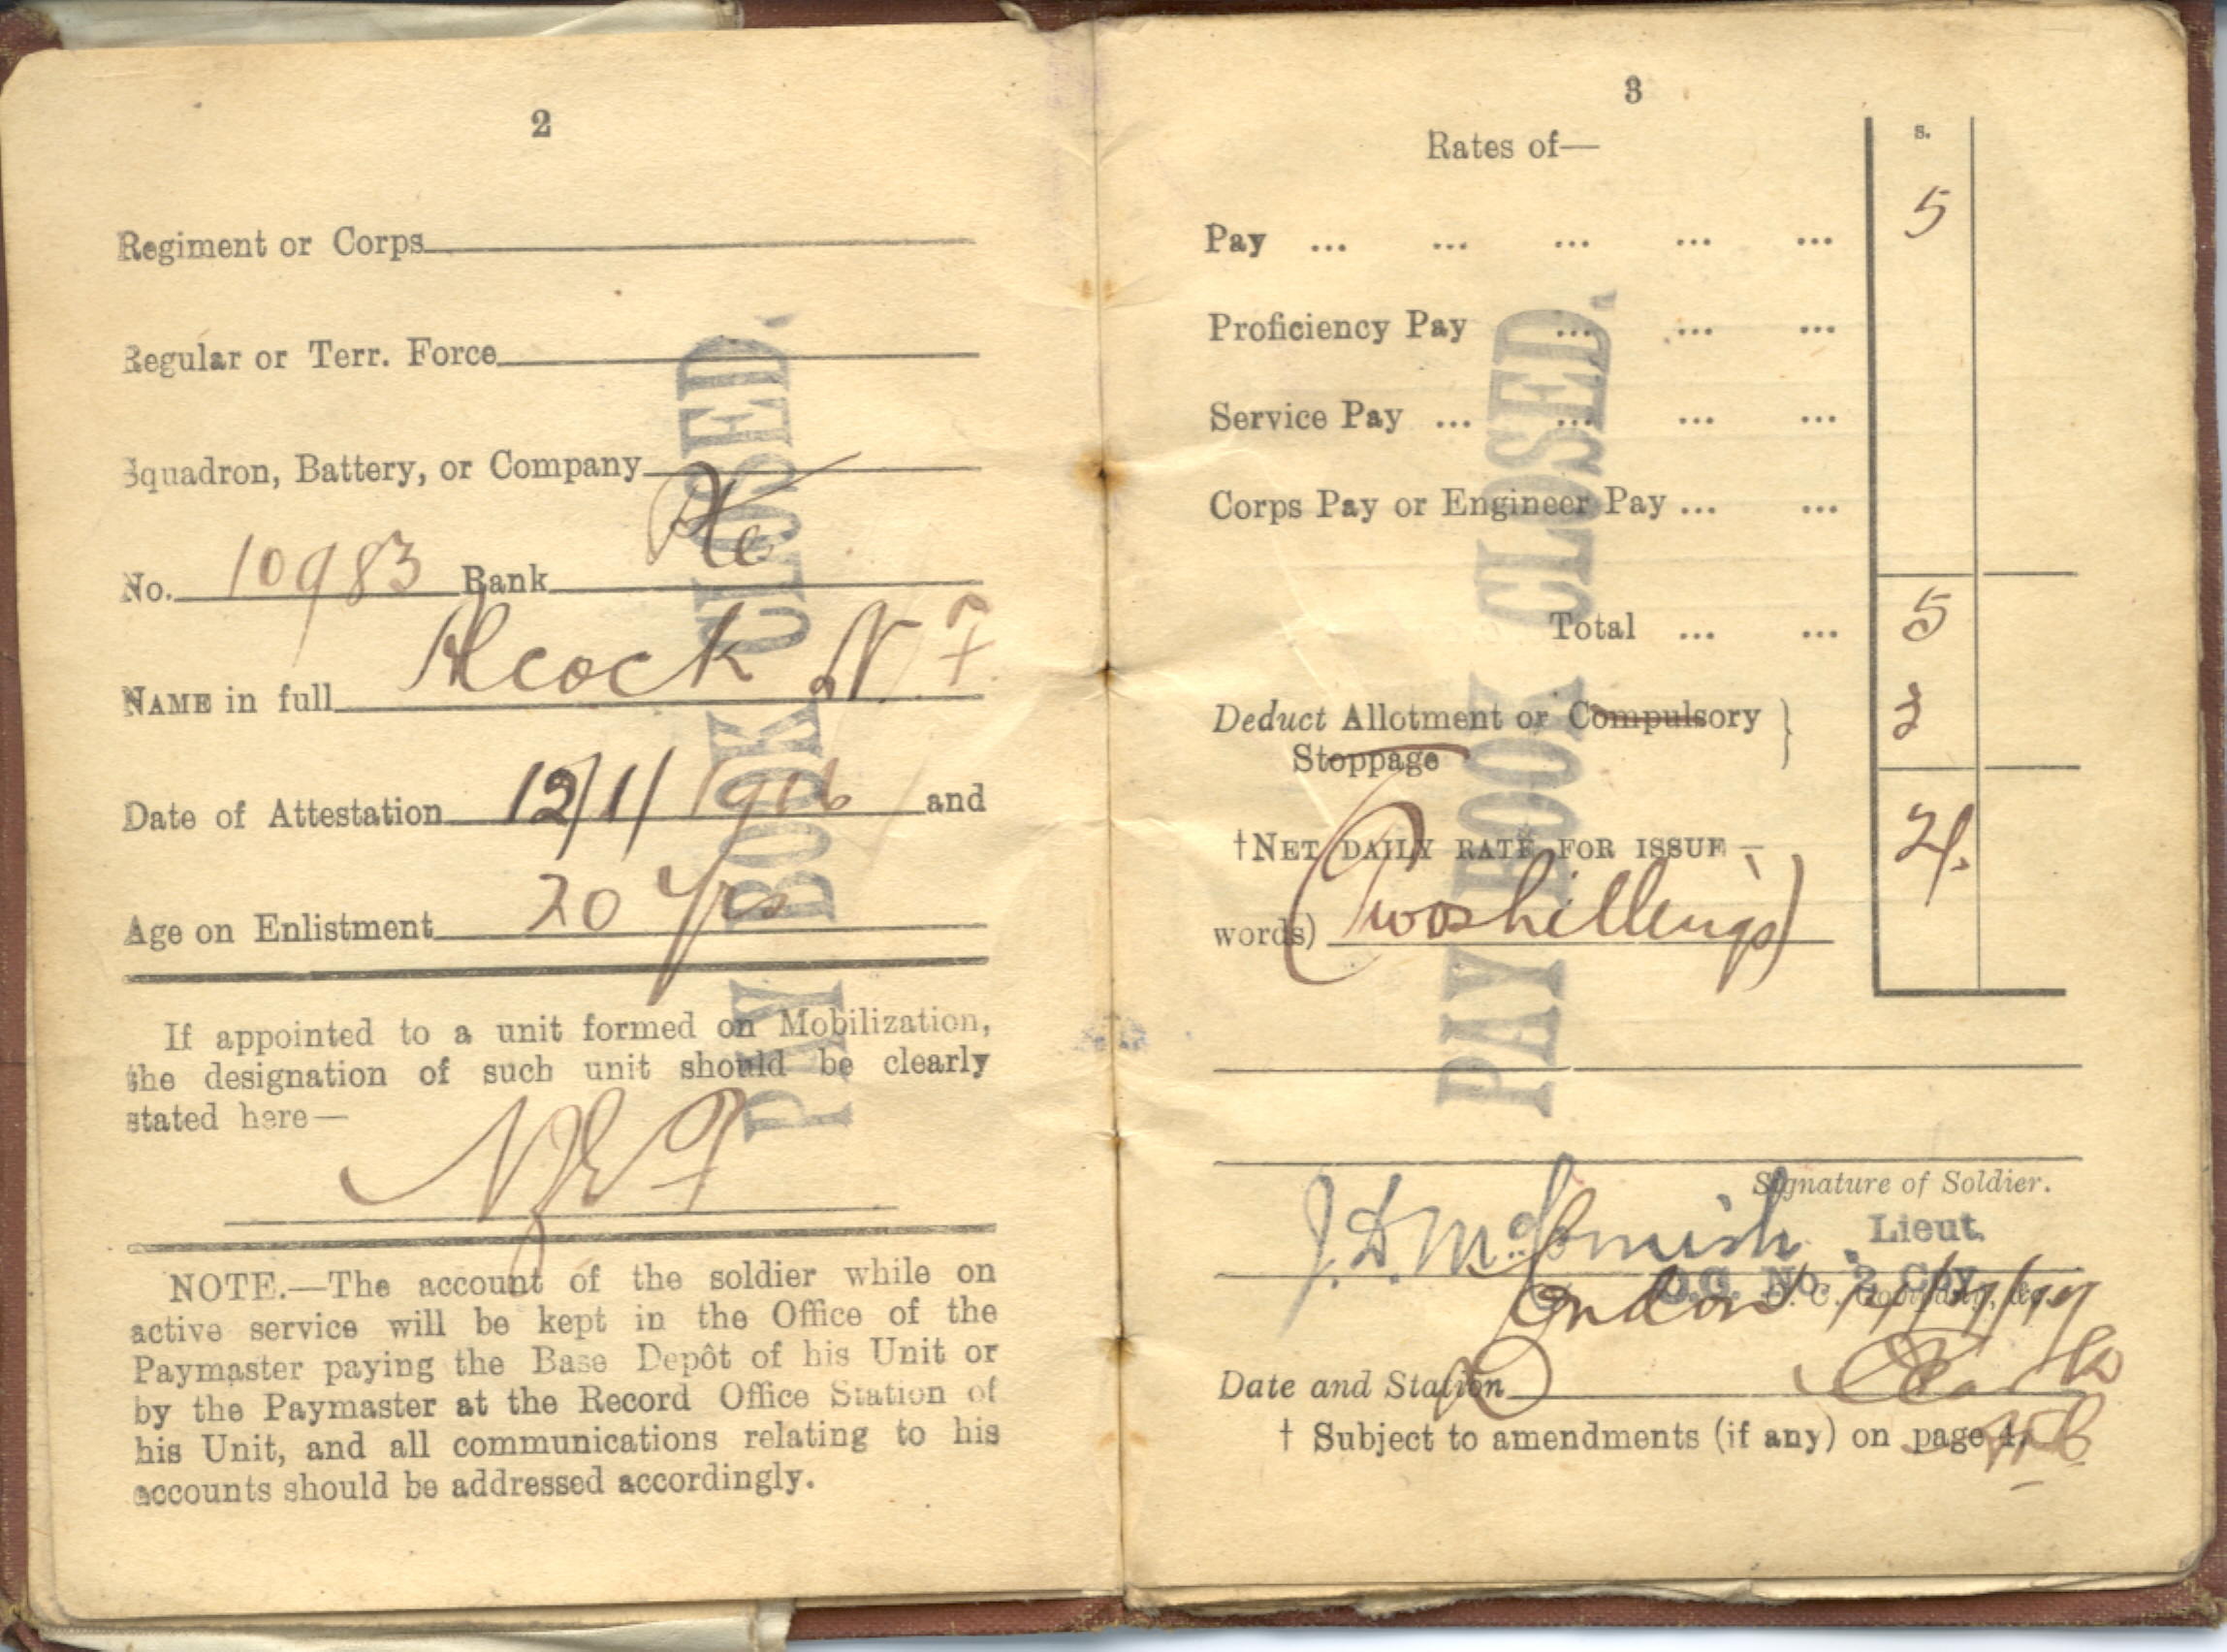 2
Regiment or Corps
Regular or Terr. Force
Squadron, Battery, or Company
No. 10983 Rank Pte
NAME in full Alcock, N. F.
Date of Attestation 12/1/1916 and
Age on Enlistment 20 Yrs
If appointed to a unit formed on Mobilization,
the designation of such unit should be clearly
stated here—
NZEF
NOTE.—The account of the soldier while on
active service will be kept in the Office of the
Paymaster paying the Base Depôt of his Unit or
by the Paymaster at the Record Office Station of
his Unit, and all communications relating to his
accounts should be addressed accordingly.
PAY BOOK CLOSED.
3
Rates of— s.
Pay ... ... ... ... ... 5
Proficiency Pay ... ... ...
Service Pay ... ... ... ...
Corps Pay or Engineer Pay ... ...
Total ... ... 5
Deduct Allotment or Compulsory
Stoppage 3
†NET DAILY RATE FOR ISSUE — 2/.
words) (Two shillings)
PAY BOOK CLOSED.
Signature of Soldier.
Lieut.
O.C. No. 2 Coy.
O. C. Company, &c.
London
Date and Station
† Subject to amendments (if any) on page 4.